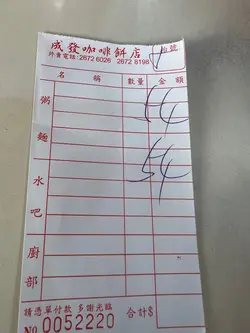 成發咖啡餅店
外賣電話:2672 6026 2672 8198
枱號
名稱 數量 金額
粥 54
麵 54
水
吧
廚
部
請憑單付款 多謝光臨
No 0052220 合計$